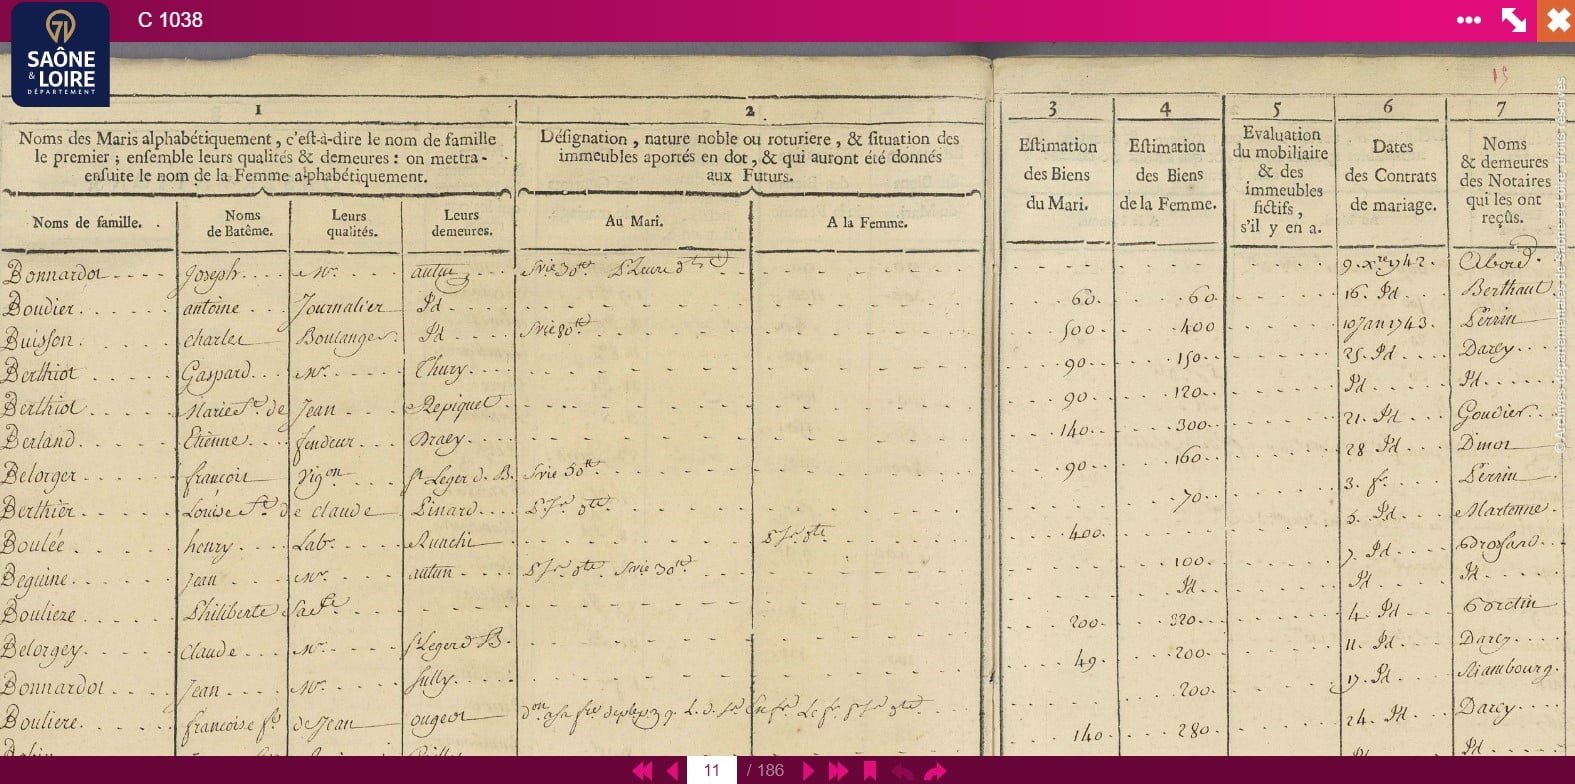 C 1038
71
SAÔNE
& LOIRE
DÉPARTEMENT
15
1 2. 3 4 5 6 7
Noms des Maris alphabétiquement, c'est-à-dire le nom de famille
le premier ; ensemble leurs qualités & demeures : on mettra
ensuite le nom de la Femme alphabétiquement.
Désignation, nature noble ou roturiere, & situation des
immeubles aportés en dot, & qui auront été donnés
aux Futurs.
Estimation
des Biens
du Mari.
Estimation
des Biens
de la Femme.
Evaluation
du mobiliaire
& des
immeubles
fictifs,
s'il y en a.
Dates
des Contrats
de mariage.
Noms
& demeures
des Notaires
qui les ont
reçûs.
Noms de famille.
Noms
de Batême.
Leurs
qualités.
Leurs
demeures.
Au Mari.
A la Femme.
Bonnardot Joseph mr. autun 9. xre 1742. Abord.
Boudier antoine Journalier Id 60. 60. 16. Id Berthaut
Buisson charles Boulanger Id 500. 400 10 Jan 1743. Perrin
Berthiot Gaspard mr. Thury 90. 150. 25. Id Darcy
Berthiot Marie fe. de Jean Repiquet 90. 120. Id Id
Berland Etienne fendeur Braey 140. 300. 21. Id Goudier
Belorger francois Vigon St Leger d. B. 90. 160. 28 Id
Berthier Louise fe. de claude Pinard 70. 3. fr. Perrin
Boulée henry Lab. 400. 5. Id
Beguine Jean mr. autun 100. 7. Id
Bouliere Philiberte Sa fe Id. Id Id
Belorgey claude mr. St Leger d B. 200. 320. 4. Id
Bonnardot Jean mr. Sully 49. 200. 11. Id Darcy
Bouliere francoise fe de Jean ougeot 200. 17. Id
140. 280. 24. Id Darcy
Id Id
© Archives départementales de Saône-et-Loire, droits réservés
11 / 186